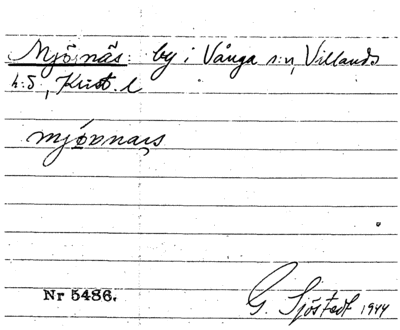 Mjönäs: by i Vånga s:n, Villands
h:d, Krist. l
mjövnaɪs
Nr 5486.
G. Sjöstedt 1944